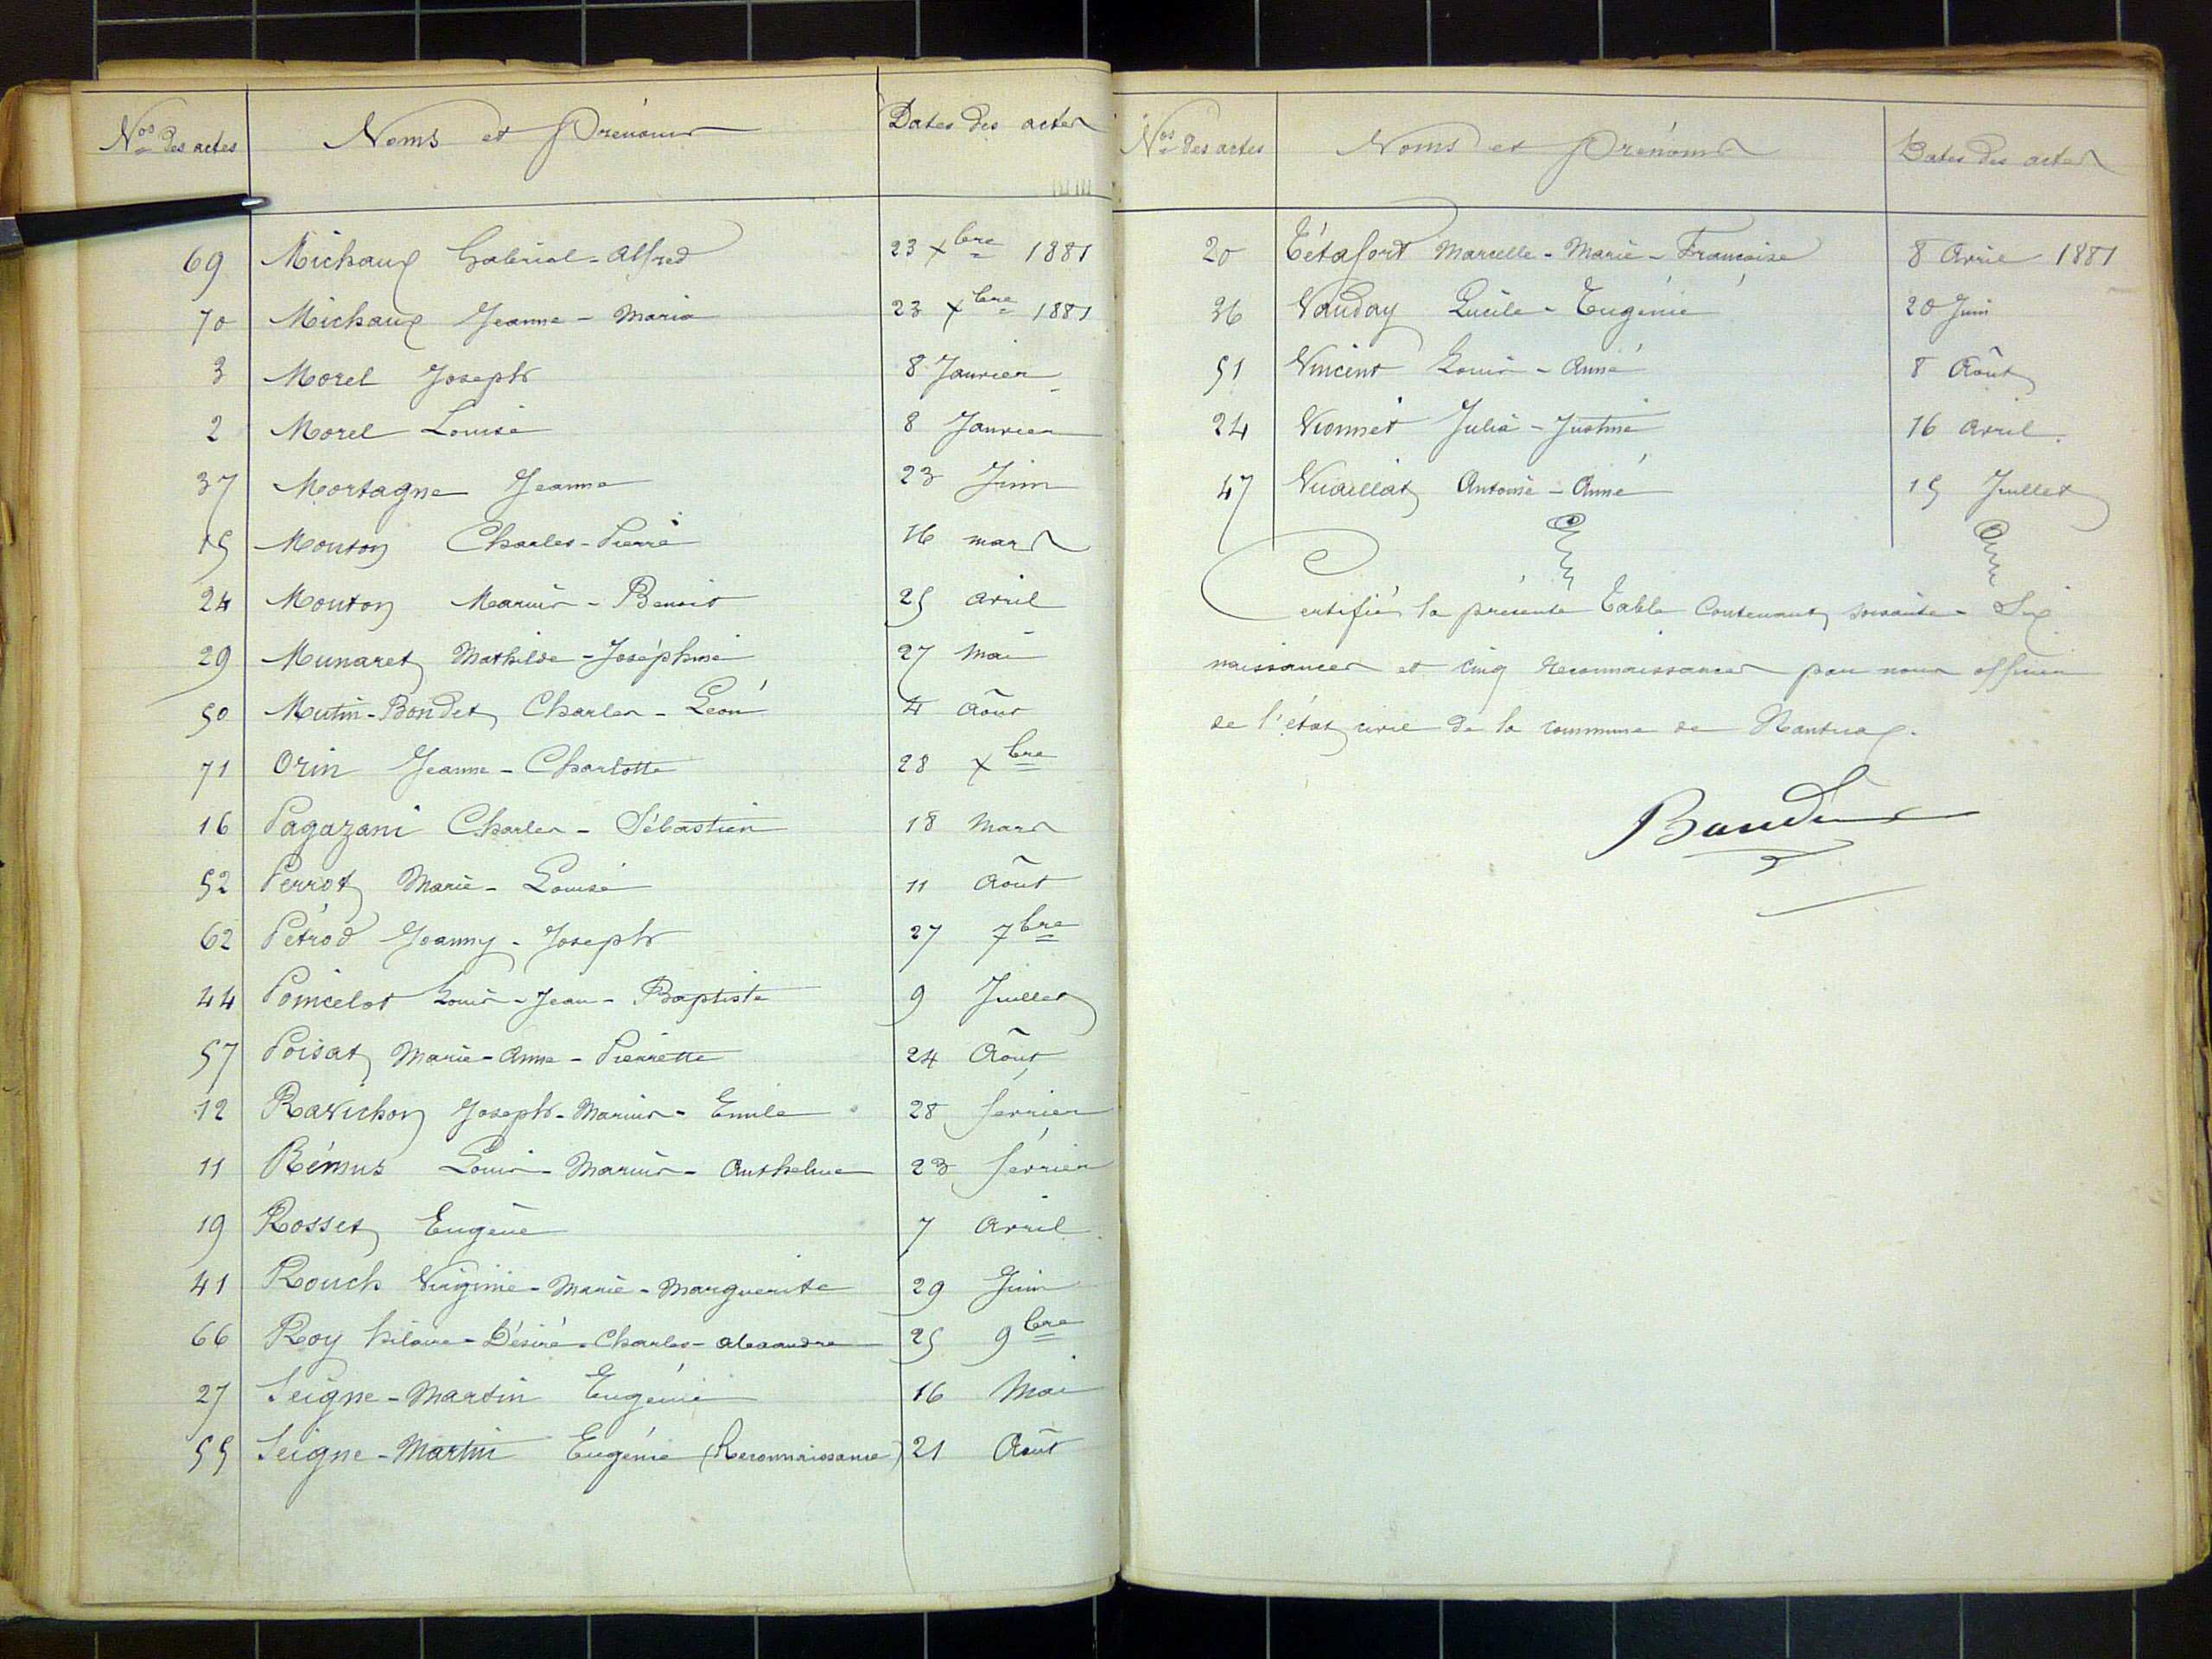 Nos des actes Noms et Prénoms Dates des actes
69 Michaux Gabriel-Alfred 23 Xbre 1881
70 Michaux Jeanne-Maria 23 Xbre 1881
3 Morel Joseph 8 Janvier
2 Morel Louise 8 Janvier
37 Mortagne Jeanne 23 Juin
15 Mouton Charles-Pierre 16 mars
24 Mouton Marius-Benoit 25 avril
29 Munaret Mathilde-Joséphine 27 Mai
50 Mutin-Bondet Charles-Léon 4 Août
71 Orin Jeanne-Charlotte 28 Xbre
16 Pagazani Charles-Sébastien 18 Mars
52 Perrot Marie-Louise 11 Août
62 Pétrod Joanny-Joseph 27 7bre
44 Poincelot Louis-Jean-Baptiste 9 Juillet
57 Poisat Marie-Anne-Pierrette 24 Août
12 Ravichon Joseph-Marius-Emile 28 février
11 Rémus Louis-Marius-Anthelme 23 février
19 Rosset Eugène 7 Avril
41 Rouch Virginie-Marie-Marguerite 29 Juin
66 Roy hilaire-Désiré-Charles-Alexandre 25 9bre
27 Seigne-Martin Eugénie 16 Mai
55 Seigne-Martin Eugénie (Reconnaissance) 21 Août
Nos des actes Noms et Prénoms Dates des actes
20 Tétafort Marcelle-Marie-Françoise 8 Avril 1881
36 Vauday Lucile-Eugénie 20 Juin
51 Vincent Louis-Aimé 8 Août
24 Vionnet Julia-Justine 16 avril.
47 Vuaillat Antoine-Aimé 15 Juillet
Certifié la présente Table Contenant soixante-Six
naissances et cinq reconnaissances par nous officier
de l'état civil de la commune de Nantua.